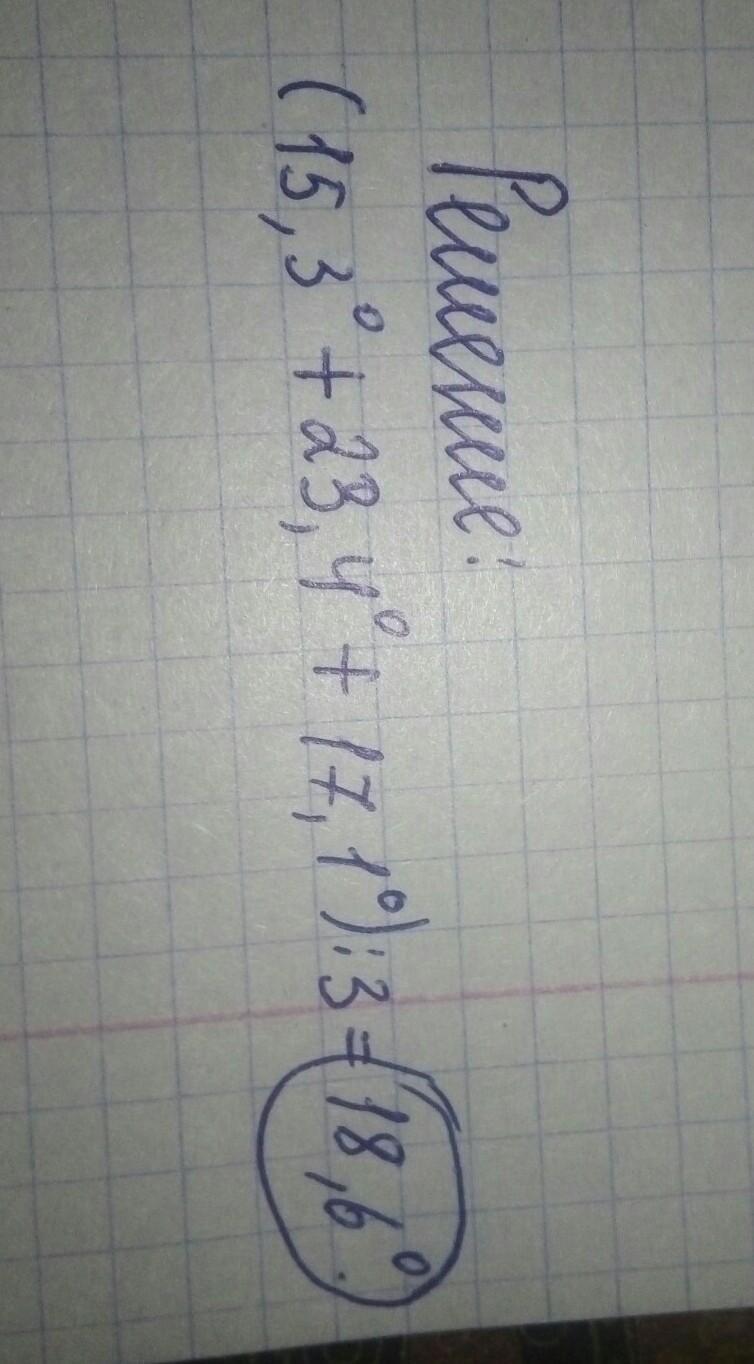 Решение:
(15,3° + 23,4° + 17,1°) : 3 = 18,6°.